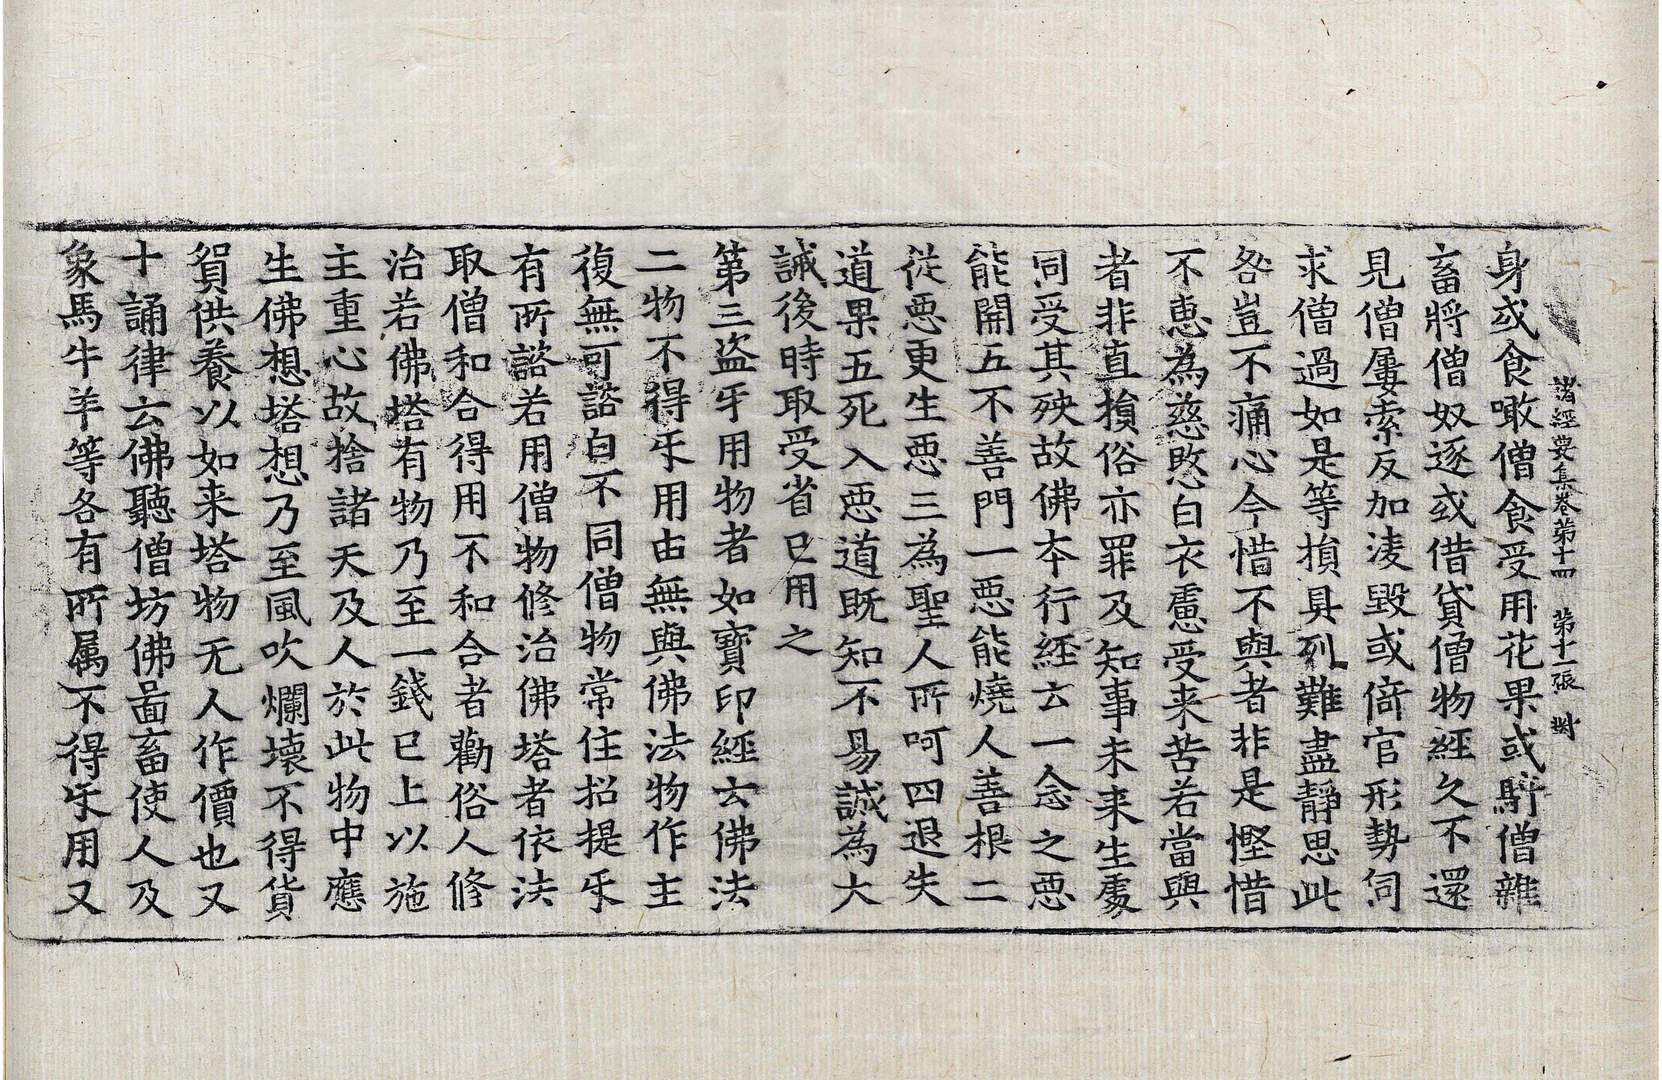 諸經要集卷第十四 第十一張 樹
身或食噉僧食受用花果或騎僧雜
畜將僧奴逐或借貸僧物經久不還
見僧屢索反加淩毀或倚官形勢伺
求僧過如是等損具列難盡靜思此
咎豈不痛心今惜不與者非是慳惜
不惠為慈愍白衣慮受来苦若當與
者非直損俗亦罪及知事未来生處
同受其殃故佛夲行經云一念之惡
能開五不善門一惡能燒人善根二
從惡更生惡三為聖人所呵四退失
道果五死入惡道既知不易誠為大
誡後時取受省已用之
第三盗㸦用物者如寶印經云佛法
二物不得㸦用由無與佛法物作主
復無可諮白不同僧物常住招提㸦
有所諮若用僧物修治佛塔者依法
取僧和合得用不和合者勸俗人修
治若佛塔有物乃至一錢已上以施
主重心故捨諸天及人於此物中應
生佛想塔想乃至風吹爛壞不得貨
貿供養以如来塔物无人作價也又
十誦律云佛聽僧坊佛啚畜使人及
象馬牛羊等各有所属不得㸦用又